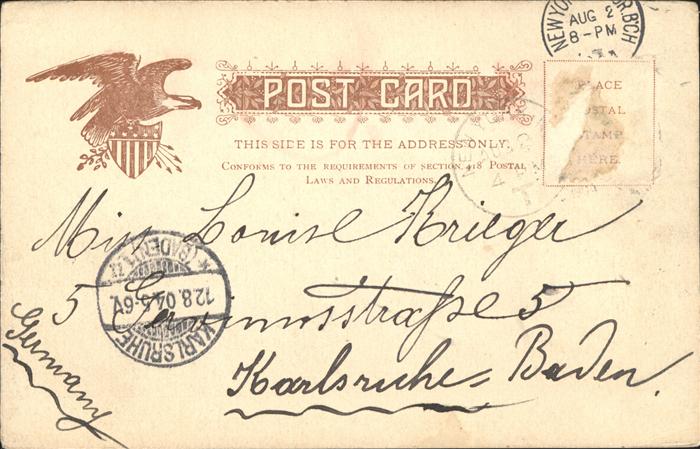 NEW YOR
AUG 2
8-PM
POST CARD
PLACE
POSTAL
STAMP
HERE.
THIS SIDE IS FOR THE ADDRESS ONLY.
CONFORMS TO THE REQUIREMENTS OF SECTION 418 POSTAL
LAWS AND REGULATIONS.
Miss Louise Krieger
5 Gervinusstraße 5
Karlsruhe = Baden.
Germany
KARLSRUHE
12.8.04. 5-6V.
* (BADEN) 1